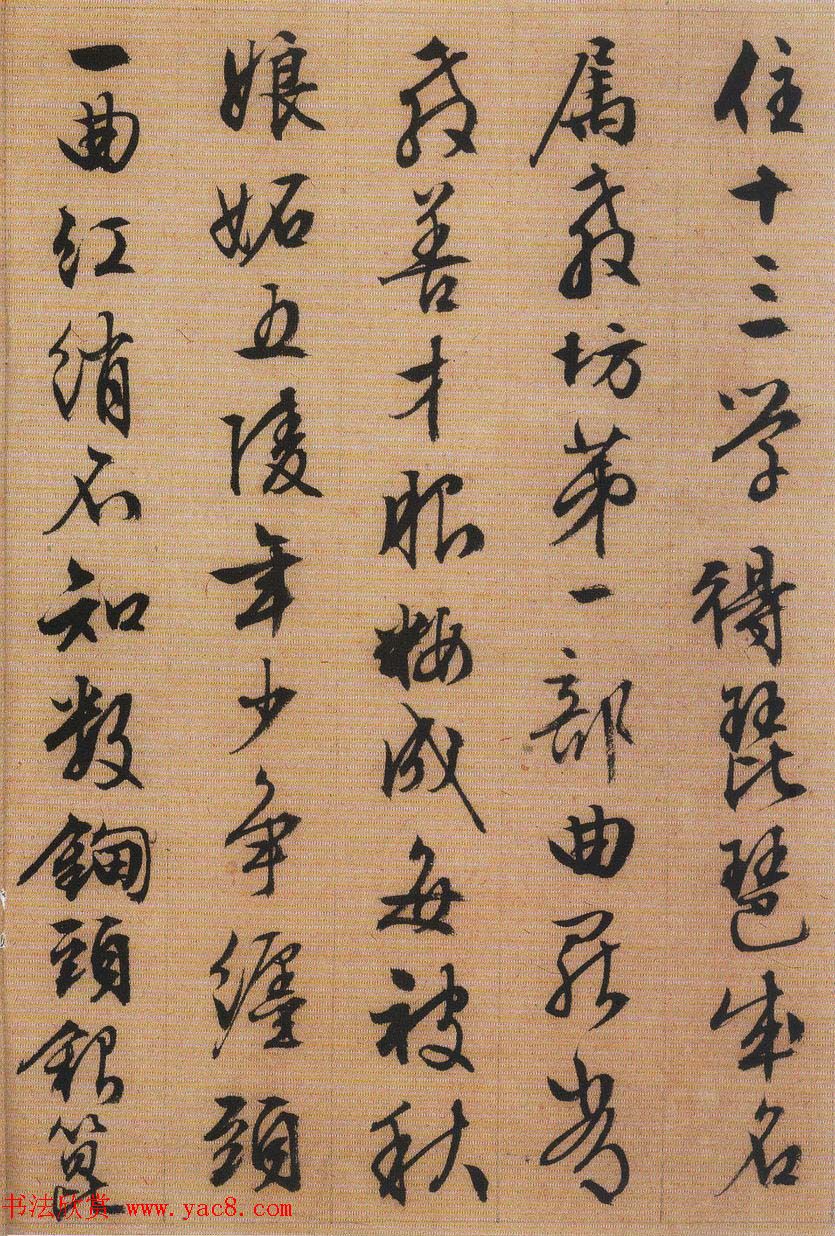 住十三学得琵琶成名
属教坊第一部曲罷常
教善才服粧成每被秋
娘妬五陵年少争纏頭
一曲紅綃不知数鈿頭銀篦
书法欣赏 www.yac8.com